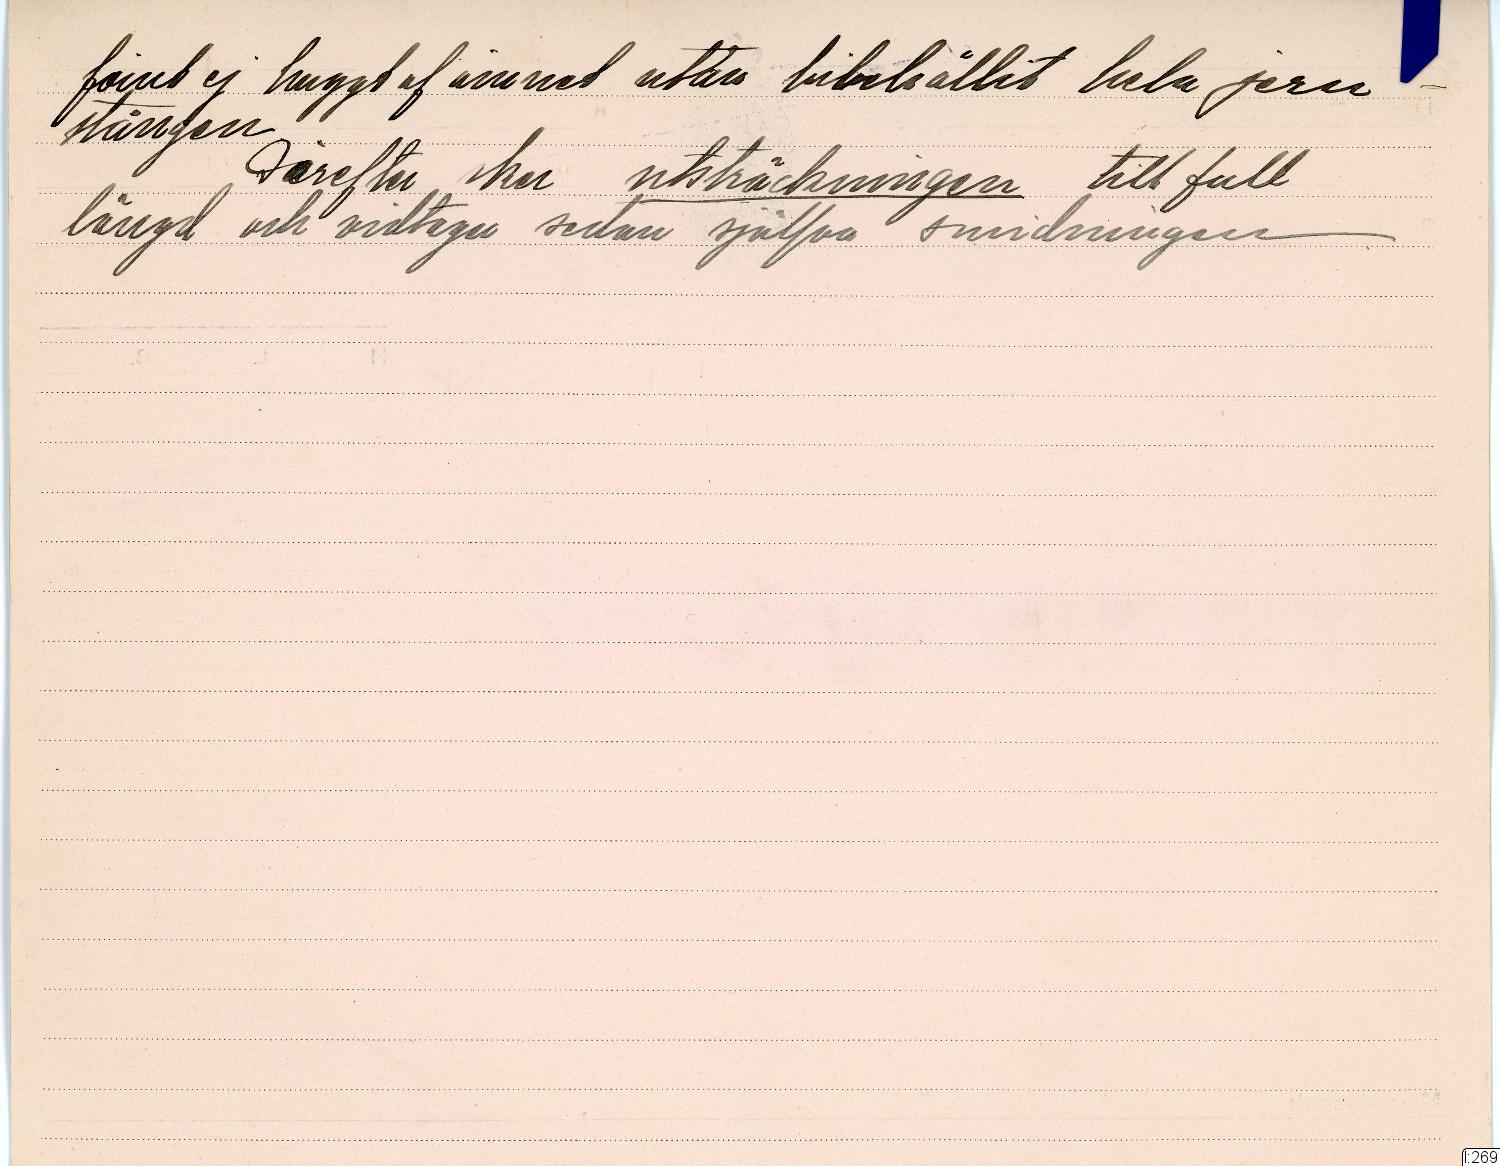 förut ej huggt af ämnet utan bibehållit hela jern-
stången
Därefter sker utsträckningen till full
längd och vidtager sedan själfva smidningen
I:269